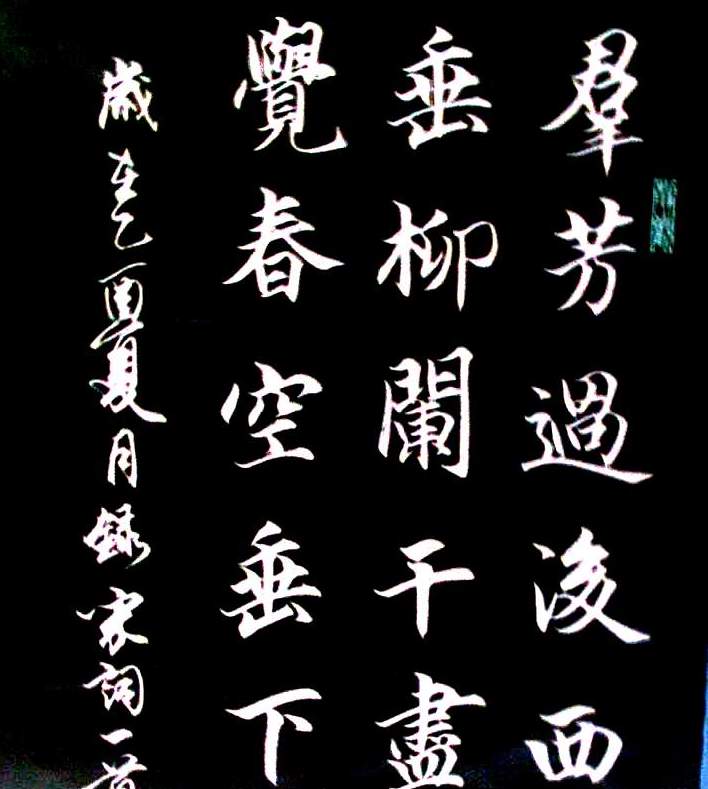 羣芳過後西
垂柳闌干盡
覺春空垂下
歲在乙酉夏月錄宋詞一首